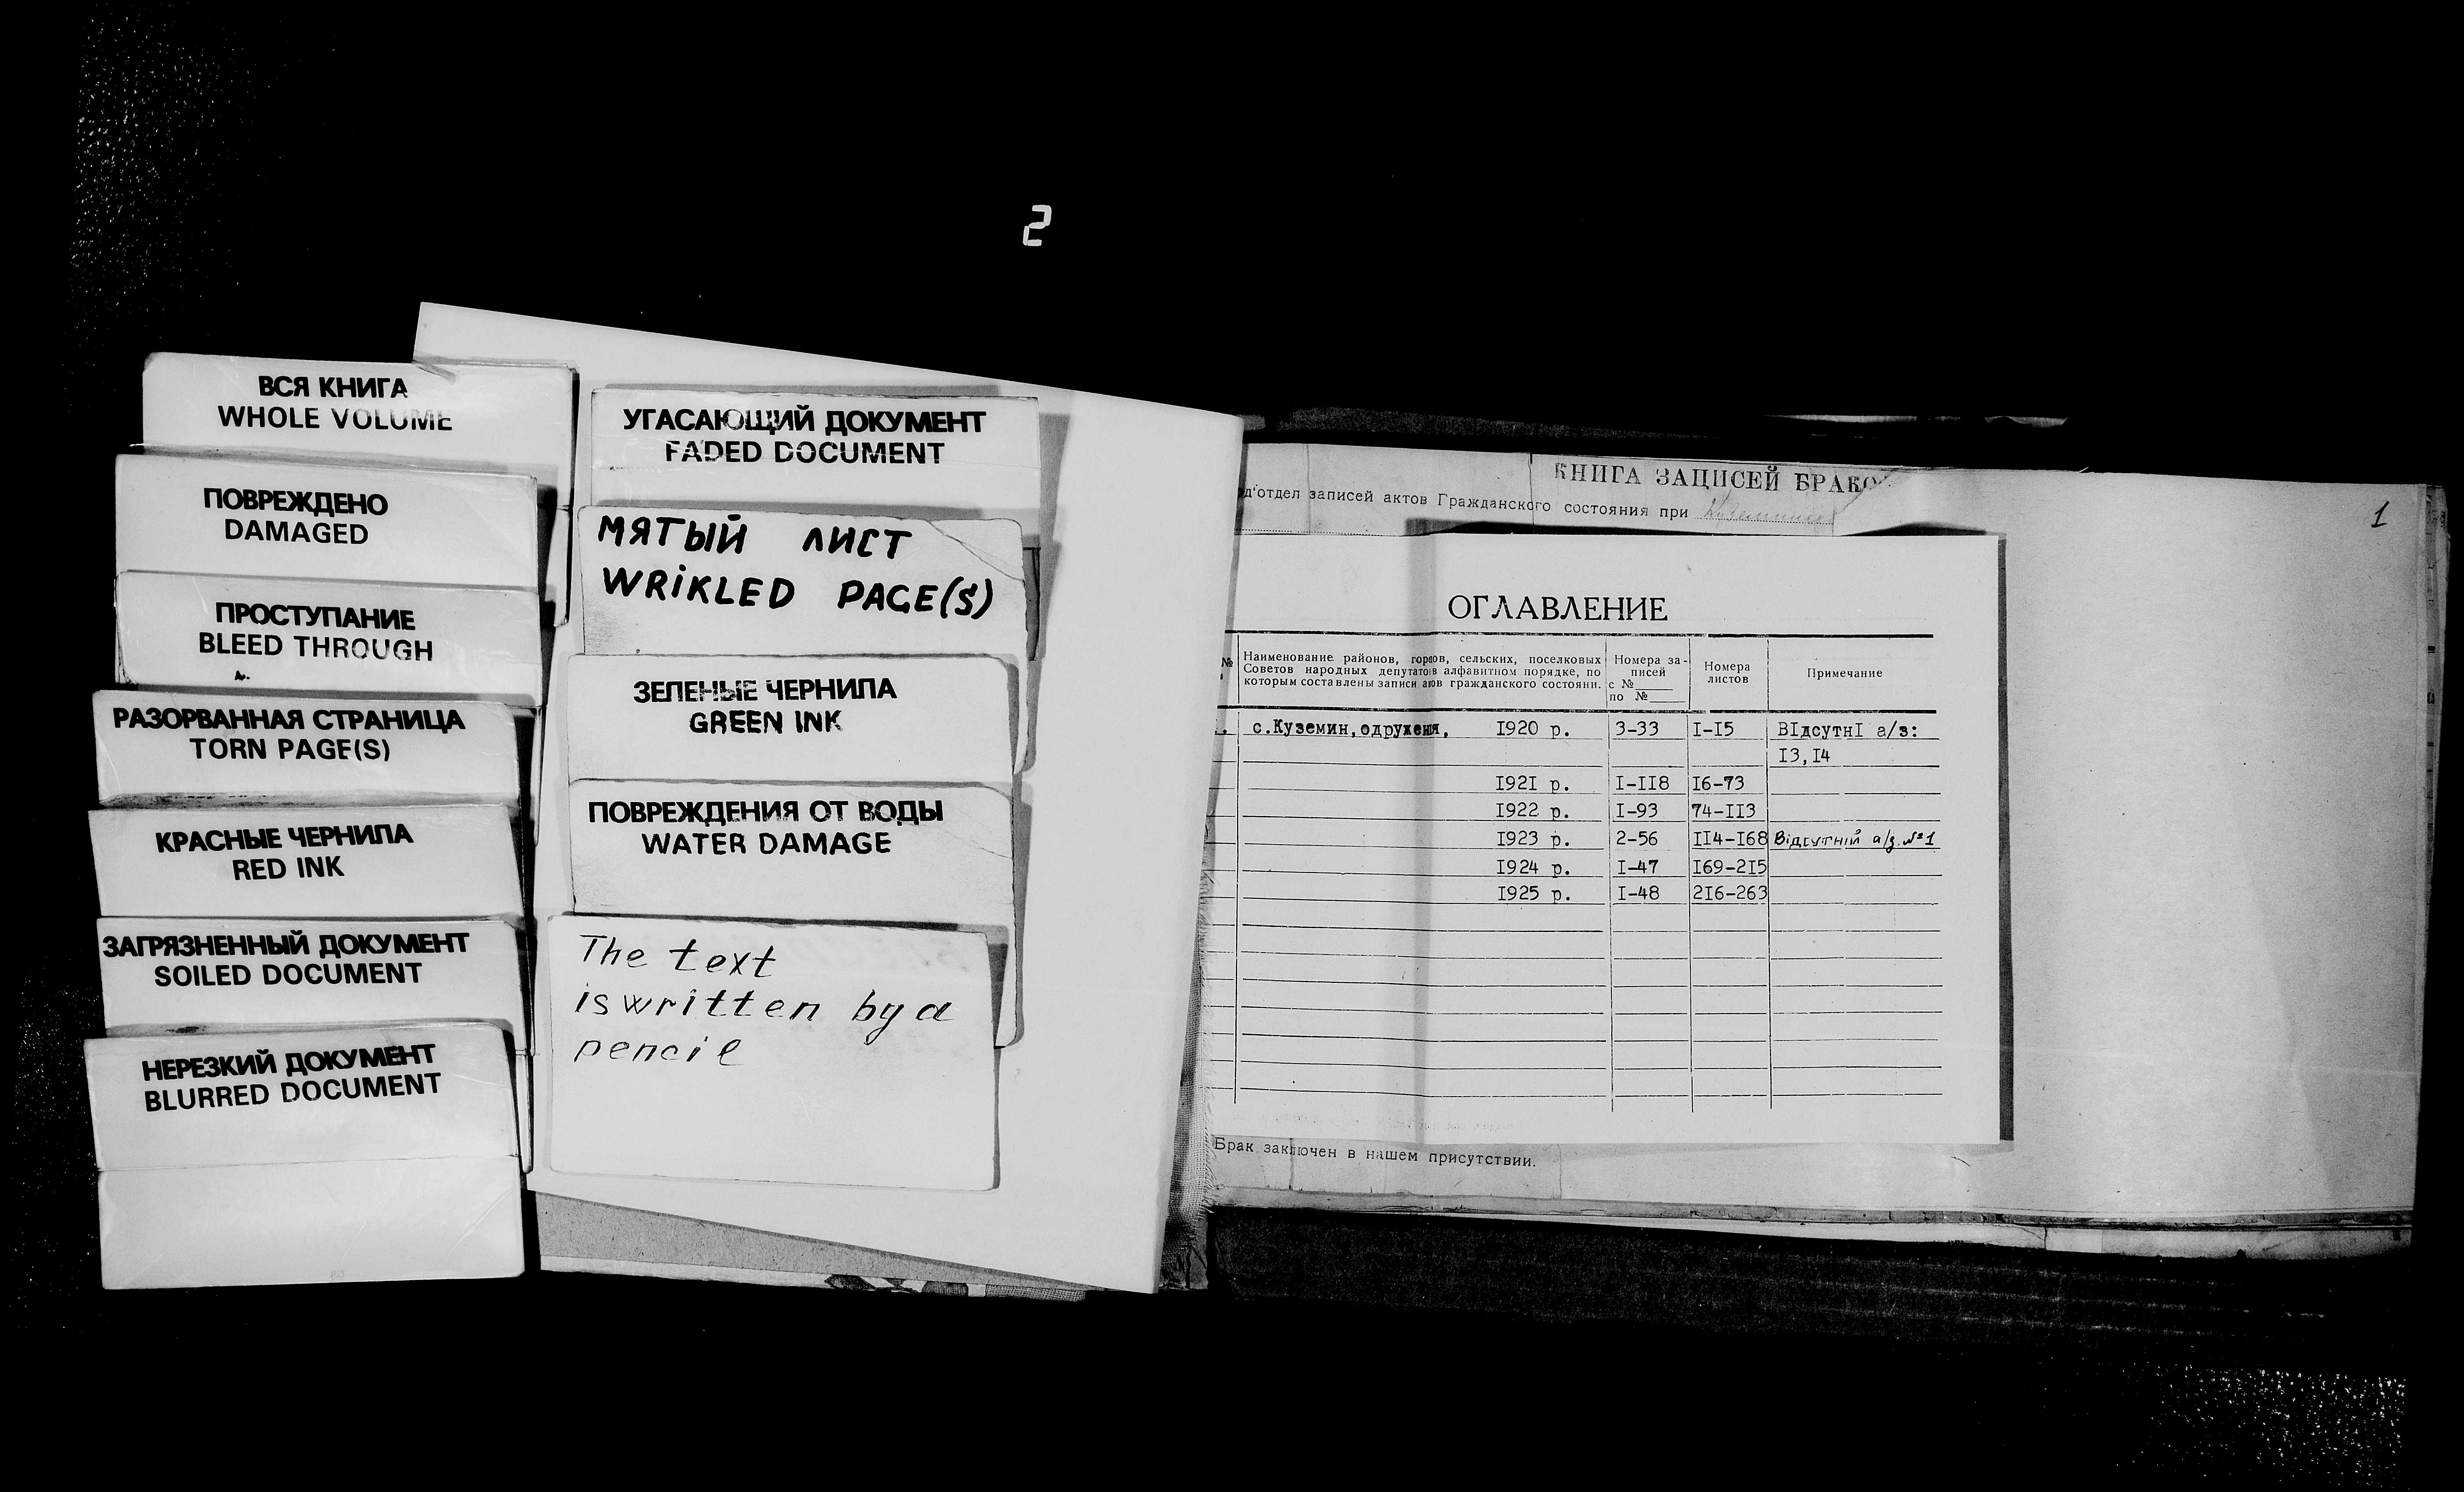 2
ВСЯ КНИГА
WHOLE VOLUME
ПОВРЕЖДЕНО
DAMAGED
ПРОСТУПАНИЕ
BLEED THROUGH
РАЗОРВАННАЯ СТРАНИЦА
TORN PAGE(S)
КРАСНЫЕ ЧЕРНИЛА
RED INK
ЗАГРЯЗНЕННЫЙ ДОКУМЕНТ
SOILED DOCUMENT
НЕРЕЗКИЙ ДОКУМЕНТ
BLURRED DOCUMENT
УГАСАЮЩИЙ ДОКУМЕНТ
FADED DOCUMENT
МЯТЫЙ ЛИСТ
WRIKLED PAGE(S)
ЗЕЛЕНЫЕ ЧЕРНИЛА
GREEN INK
ПОВРЕЖДЕНИЯ ОТ ВОДЫ
WATER DAMAGE
The text
is written by a
pencil
КНИГА ЗАПИСЕЙ БРАКО
д'отдел записей актов Гражданского состояния при
1
ОГЛАВЛЕНИЕ
№ Наименование районов, городов, сельских, поселковых
Советов народных депутатов в алфавитном порядке, по
которым составлены записи актов гражданского состояни.
Номера за-
писей
с №
по №
Номера
листов
Примечание
с.Куземин, одруження, I920 р. 3-33 I-I5 ВIдсутнI а/з:
I3,I4
I92I р. I-II8 I6-73
I922 р. I-93 74-II3
I923 р. 2-56 II4-I68 Відсутній а/з №1
I924 р. I-47 I69-2I5
I925 р. I-48 2I6-263
Брак заключен в нашем присутствии.